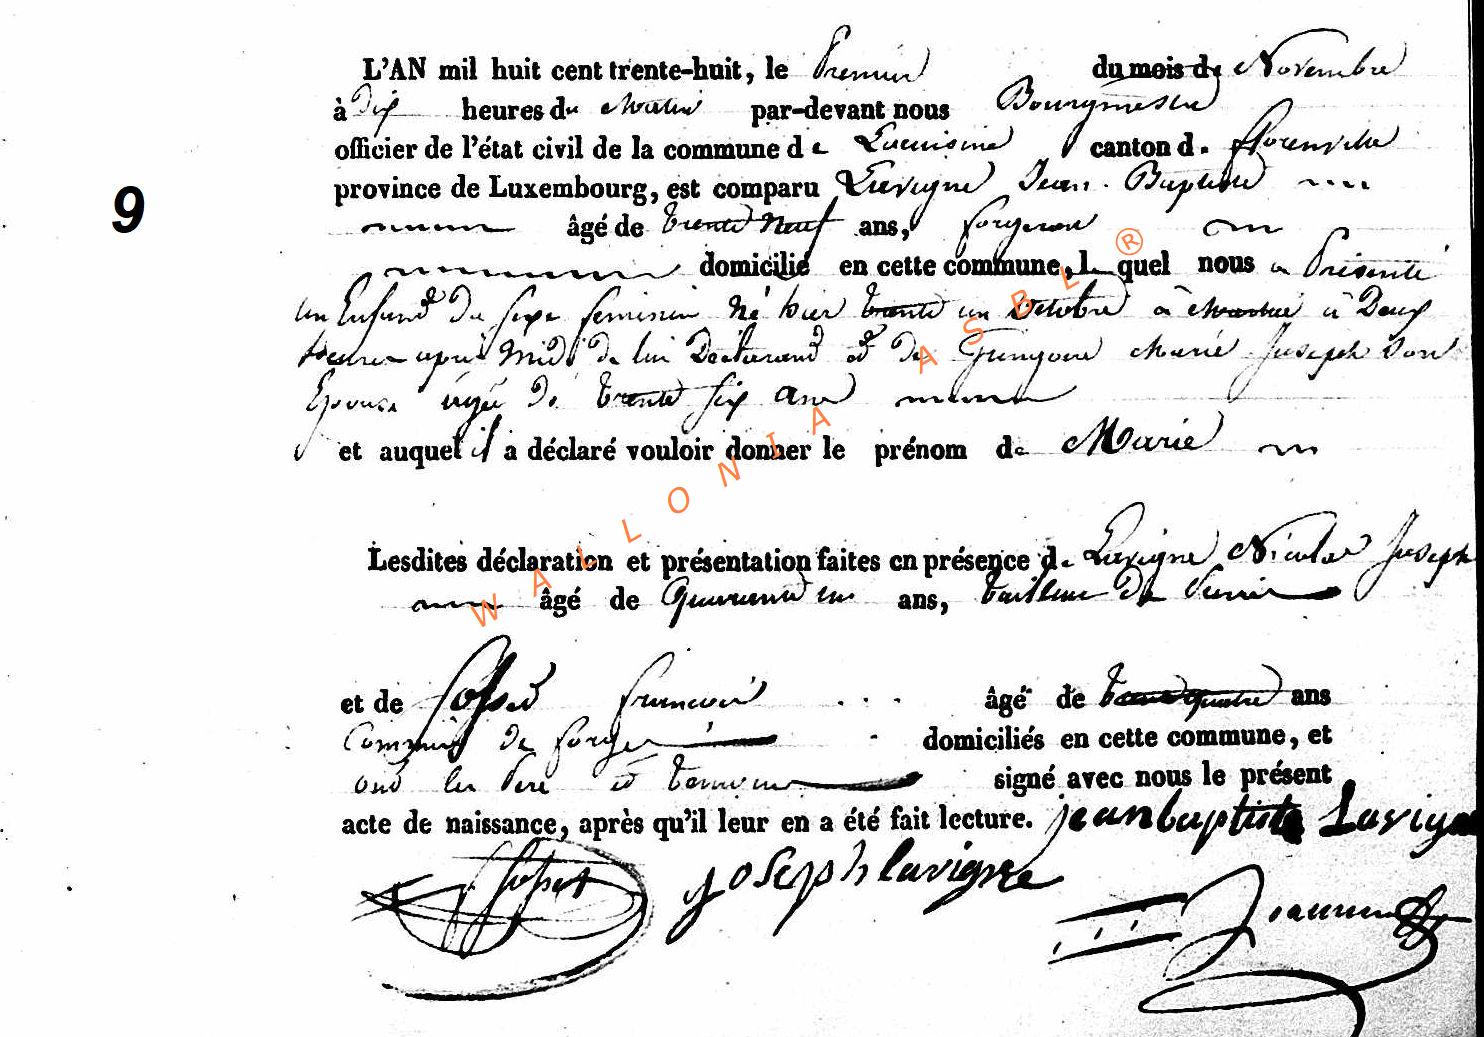 L'AN mil huit cent trente-huit, le Premier du mois de Novembre
à Dix heures du Matin par-devant nous Bourgmestre
officier de l'état civil de la commune de Lacuisine canton d. florenville
province de Luxembourg, est comparu Lavigne Jean Baptiste
9
âgé de trente Neuf ans, forgeron
domicilié en cette commune, lequel nous a Présenté
un Enfand du sexe feminin Né hier trente un octobre à Deux
heures après Midi de lui Déclarand et de Gringoire Marie Joseph Son
Epouse agée de trente six ans
et auquel il a déclaré vouloir donner le prénom de Marie
Lesdites déclaration et présentation faites en présence de Lavigne Nicolas Joseph
âgé de Quarante un ans, tailleur de
et de françois âgé de trente quatre ans
Commis de forges domiciliés en cette commune, et
ond les Père et temoins signé avec nous le présent
acte de naissance, après qu'il leur en a été fait lecture. jean baptiste Lavigne
joseph lavigne
WALLONIA ASBL ®